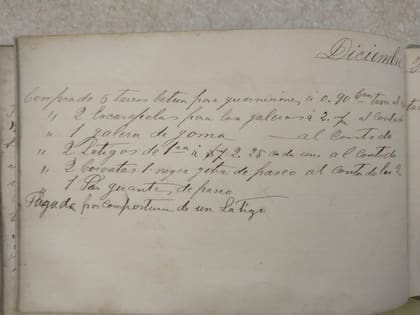 Diciembre
Comprado 6 tarros betun para guarniciones á 0.90 Ctvs tarro al
" 2 Escarapelas para las galeras á 2. al Contado
" 1 galera de goma — al Contado
" 2 Latigos de 1ra á $ 2.25 cada uno al Contado
" 2 Corvatas 1 negra de paseo al Contado las 2
" 1 Par guantes de paseo
Pagado por compostura de un Latigo